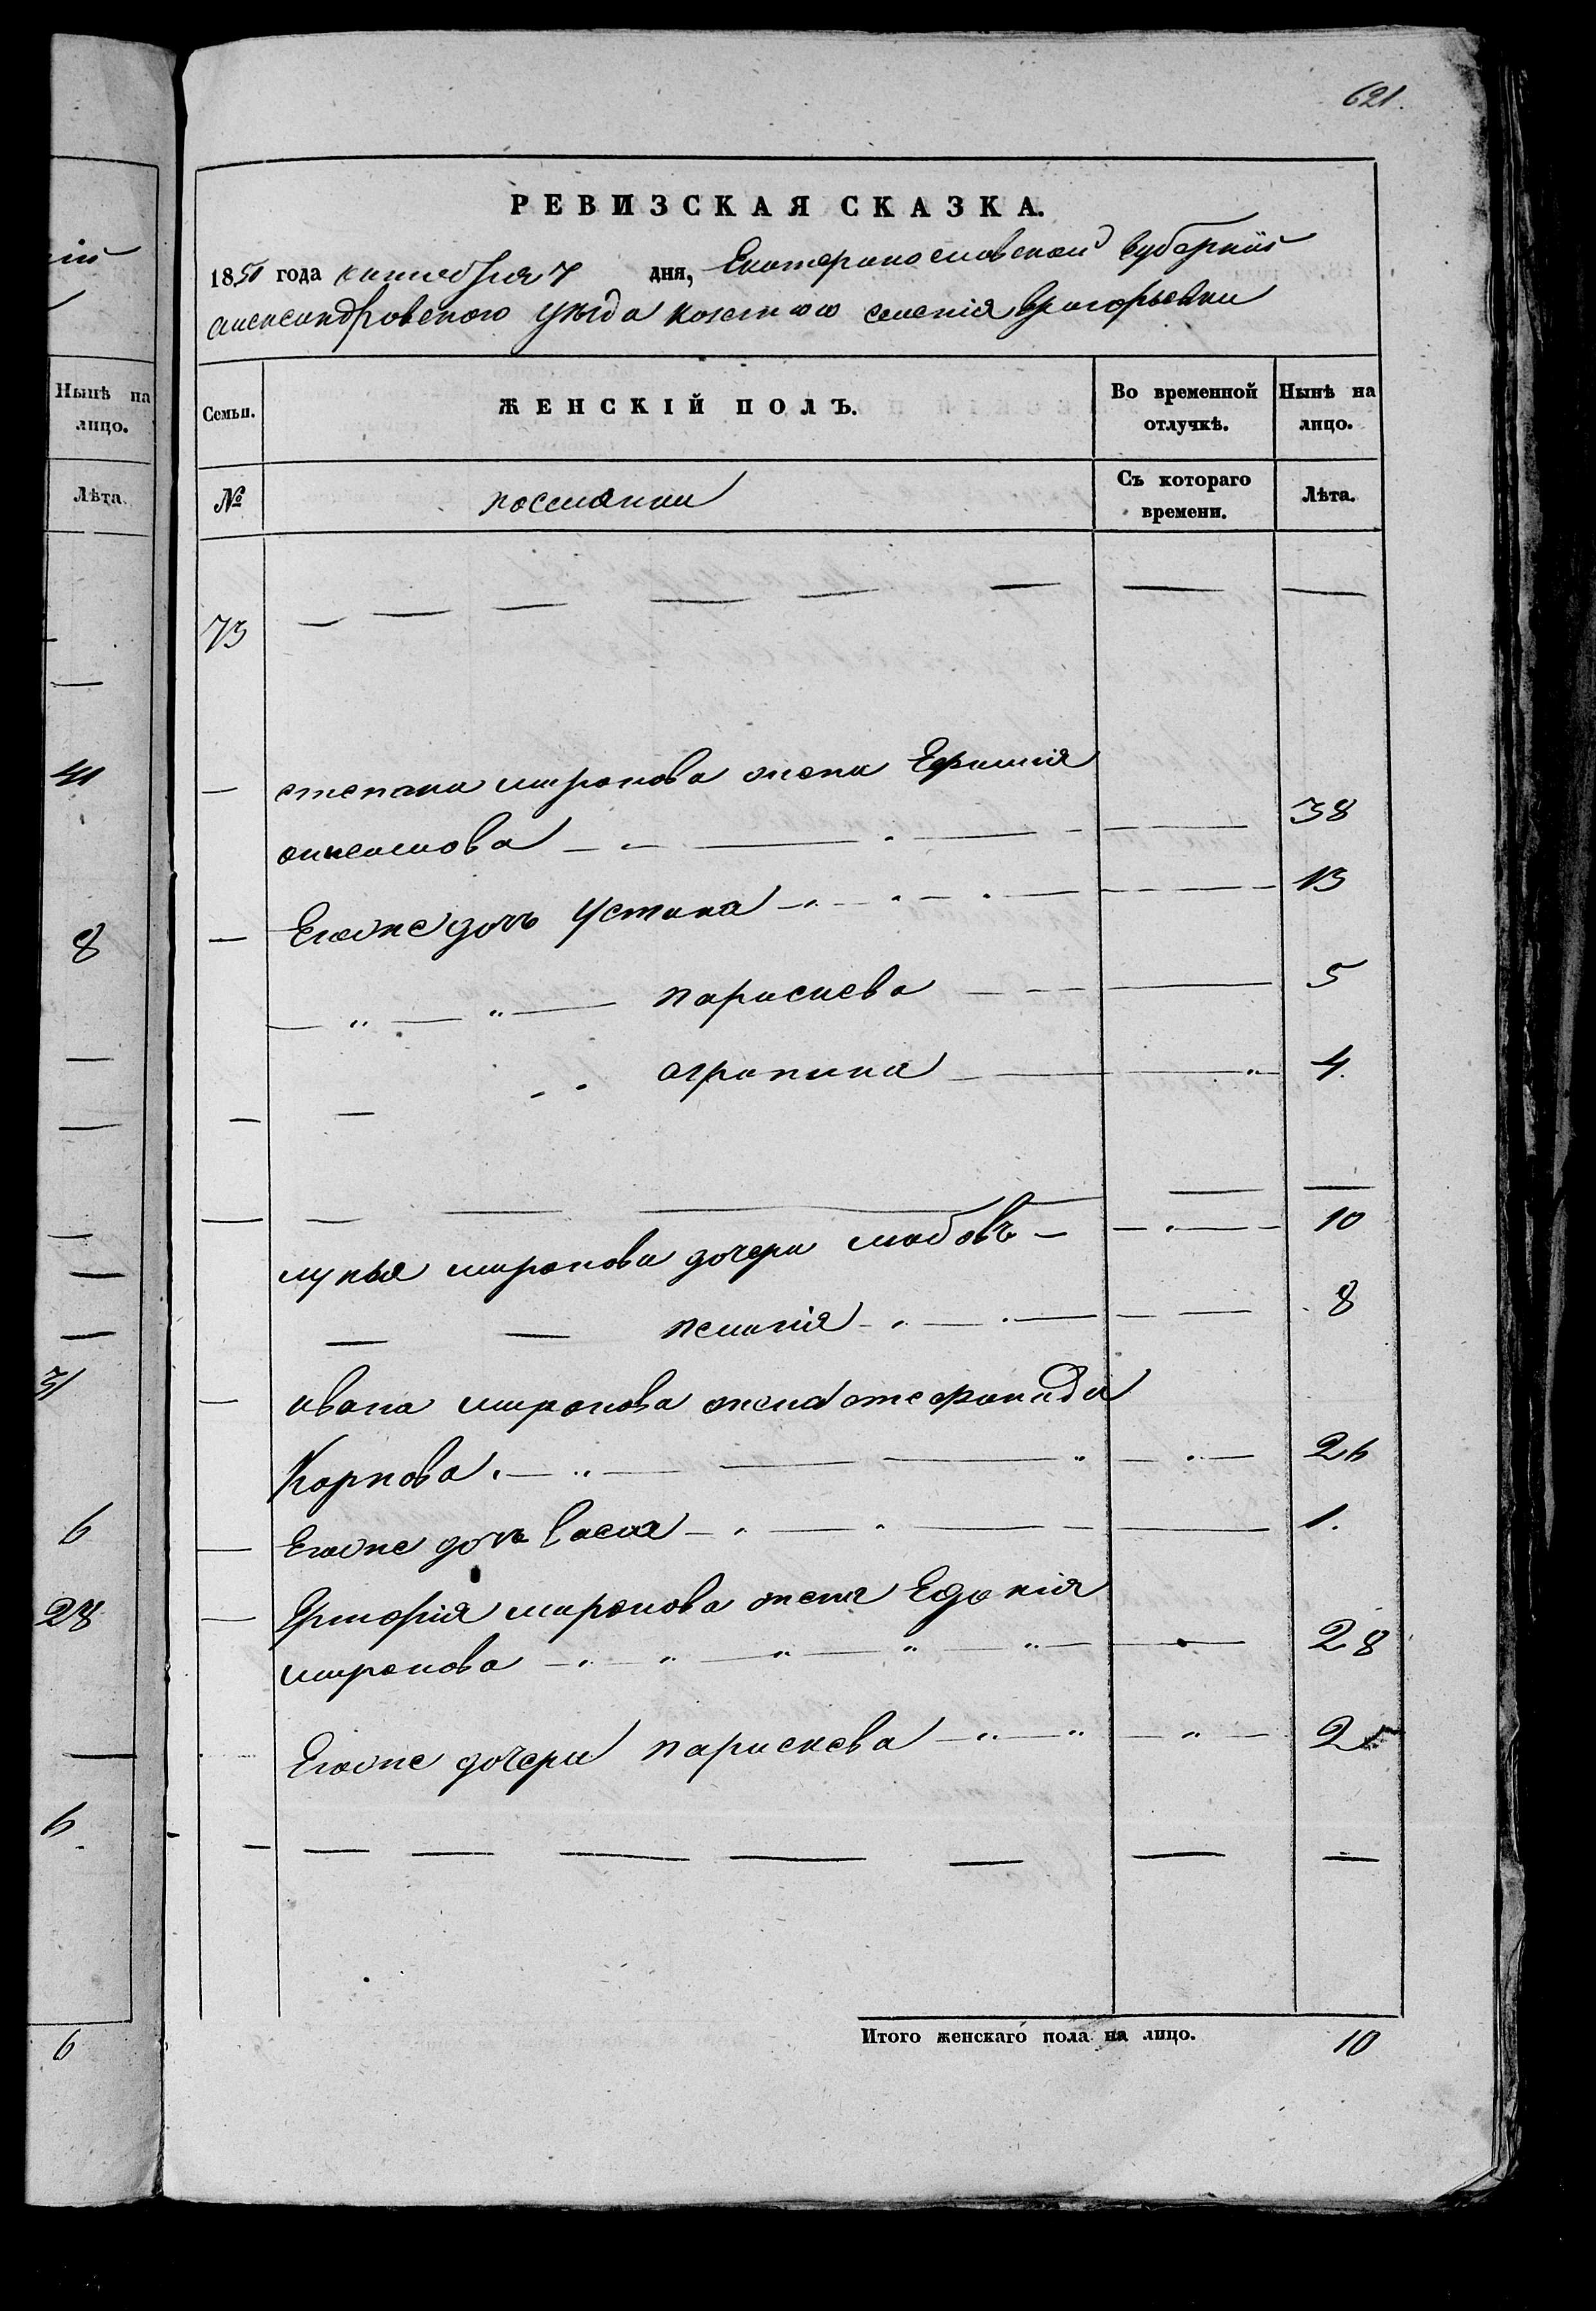 621.
РЕВИЗСКАЯ СКАЗКА.
1850 года октебрия 7 дня, Екатеринославской губерніи
александровского уезда козенного селенія григорьевки
Семьи. ЖЕНСКІЙ ПОЛЪ. Во временной отлучкѣ. Нынѣ на лицо.
№ поселянки Съ котораго времени. Лѣта.
73
степана миронова жена Ефимія
анисимова 38
Егоже дочь устина 13
параскева 5
агрипина 4.
лукья миронова дочери любовъ 10
пелагія 8
ивана миронова жена стефанида
Карпова 26
Егоже дочь васса 1.
Григорія миронова жена Евдокія
миронова 28
Егоже дочери параскева 2
Итого женскаго пола на лицо. 10
Нынѣ на
лицо.
Лѣта
41
8
31
6
28
6
6